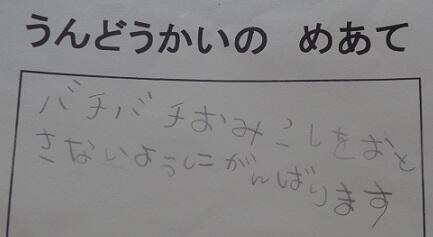 うんどうかいの めあて
バチバチおみこしをおと
さないようにがんばります